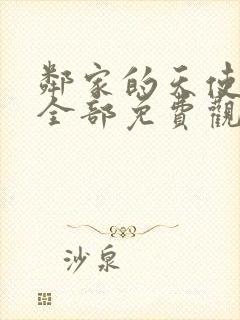 鄰家的天使
全部免費觀
沙泉